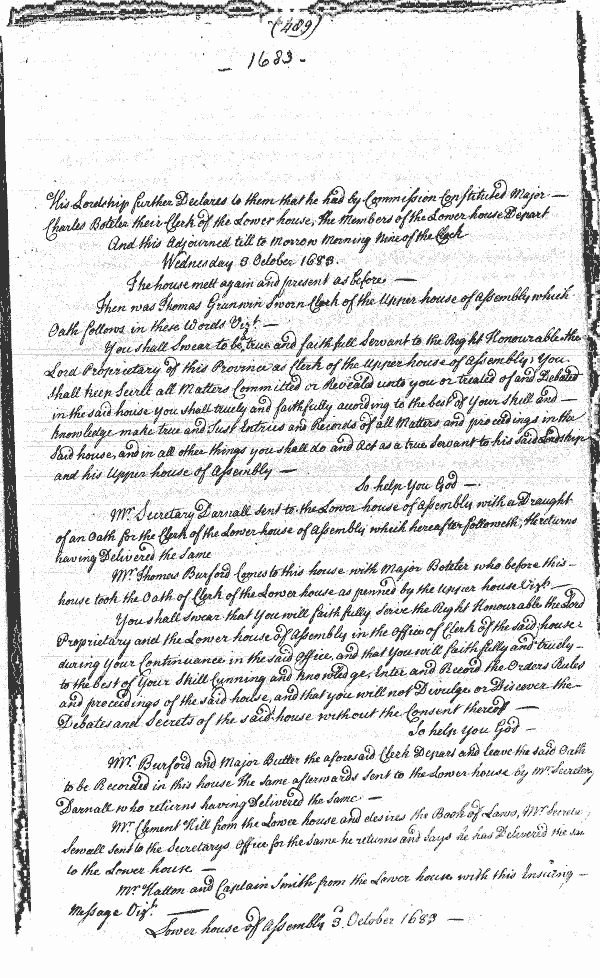 (489)
1683.
His Lordship further Declares to them that he had by Commission Constituted Major
Charles Boteler their Clerk of the Lower house, the Members of the Lower house Depart
And this Adjourned till to Morrow Morning Nine of the Clock
Wednesday 3 October 1683.
The house mett again and present as before
Then was Thomas Grunwin Sworn Clerk of the Upper house of Assembly which
Oath follows in these Words Vizt.
You shall Swear to be true and faithfull Servant to the Right Honourable the
Lord Proprietary of this Province as Clerk of the Upper house of Assembly; You
shall keep Secret all Matters Committed or Revealed unto you or treated of and Debated
in the said house you shall truely and faithfully according to the best of Your Skill and
knowledge make true and Just Entries and Records of all Matters and proceedings in the
said house, and in all other things you shall do and Act as a true Servant to his said Lordship
and his Upper house of Assembly
So help You God
Mr. Secretary Darnall sent to the Lower house of Assembly with a Draught
of an Oath for the Clerk of the Lower house of Assembly which hereafter followeth; He returns
having Delivered the same
Mr. Thomas Burford Comes to this house with Major Boteler who before this
house took the Oath of Clerk of the Lower house as penned by the Upper house Vizt.
You shall Swear that You will faithfully Serve the Right Honourable the Lord
Proprietary and the Lower house of Assembly in the Office of Clerk of the said house
during Your Continuance in the said Office, and that You will faithfully and truely
to the best of Your Skill Cunning and knowledge, Enter and Record the Orders Rules
and proceedings of the said house, and that you will not Divulge or Discover the
Debates and Secrets of the said house without the Consent thereof
So help You God
Mr. Burford and Major Butler the aforesaid Clerk Depart and leave the said Oath
to be Recorded in this house the same afterwards sent to the Lower house by Mr. Secretary
Darnall who returns having Delivered the same
Mr. Clement Hill from the Lower house and desires the Book of Laws, Mr. Secreta
Sewall sent to the Secretarys Office for the same he returns and says he has Delivered the sa
to the Lower house
Mr. Hatton and Captain Smith from the Lower house with this Ensuing
Message Vizt.
Lower house of Assembly 3 October 1683